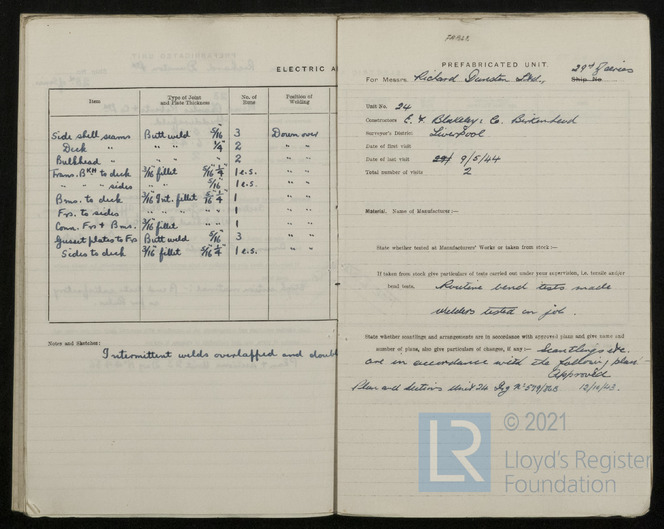 ELECTRIC A
Item
Type of Joint and Plate Thickness
No. of Runs
Position of Welding
Side shell seams Butt weld 5/16 3 Down over
Deck " " " 1/4 2 " "
Bulkhead " " " 2 " "
Trans. Bkh to deck 3/16 fillet 5/16 1/4 1 e.s. " "
" " sides " " 5/16 1 e.s. " "
Bms. to deck 3/16 Int. fillet 5/16 1/4 1 " "
Frs. to sides " " " " 1 " "
Conn. Frs & Bms. 3/16 fillet 1 " "
Gusset plates to Frs Butt weld 5/16 3 " "
Sides to deck 3/16 fillet 5/16 1/4 1 e.s. " "
Notes and Sketches:
Intermittent welds overlapped and doubl
PREFABRICATED UNIT.
For Messrs. Richard Dunston Ltd., Ship No 29th Series
Unit No. 24
Constructors E. F. Blakeley & Co. Birkenhead
Surveyor's District Liverpool
Date of first visit
Date of last visit 9/5/44
Total number of visits 2
Material. Name of Manufacturer:—
State whether tested at Manufacturers' Works or taken from stock:—
If taken from stock give particulars of tests carried out under your supervision, i.e. tensile and/or
bend tests. Routine bend tests made
Welders tested on job.
State whether scantlings and arrangements are in accordance with approved plans and give name and
number of plans, also give particulars of changes, if any:— Scantlings etc.
are in accordance with the following plan:—
Approved
Plan and Sections Unit 24 Drg No 579/ 12/10/43.
© 2021
LR
Lloyd's Register
Foundation